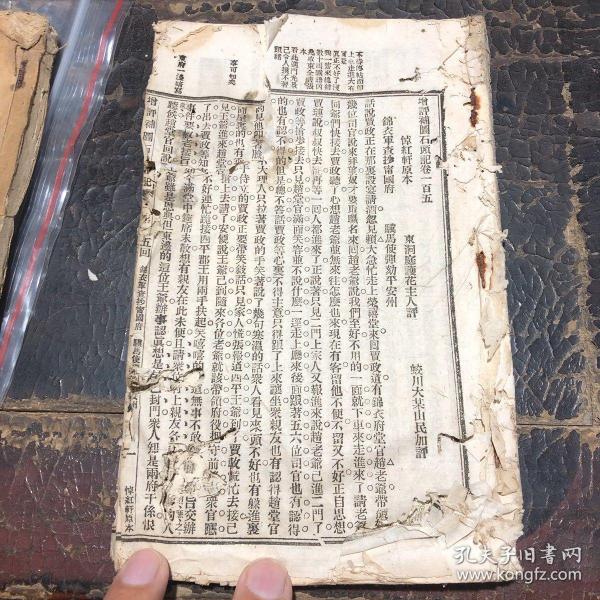 增評補圖石頭記卷一百五
悼紅軒原本
東洞庭護花主人評
蛟川大某山民加評
錦衣軍查抄寧國府
驄馬使彈劾平安州
話說賈政正在那裏設宴請酒忽見賴大急忙走上榮禧堂來回賈政道有錦衣府堂官趙老爺帶領
幾位司官說來拜望奴才要取職名來回趙老爺說我們至好不用的一面就下車來走進來了請老爺
同爺們快接去賈政聽了心想趙老爺並無來往怎麼也來現在有客留他不便不留又不好正自思想
賈璉說叔叔快去罷再等一回人都進來了正說著只見二門上家人又報進來說趙老爺已進二門了
賈政等搶步接去只見趙堂官滿面笑容並不說什麼一逕走上廳來後面跟著五六位司官也有認得
的也有不認得的但是總不答話賈政等心裏不得主意只得跟了上來讓坐眾親友也有認得趙堂官
的見他仰著臉大理人只拉著賈政的手笑著說了幾句寒溫的話眾人看見來頭不好也有躲進裏
間屋裏的也有垂手侍立的賈政正要帶笑敘話只見家人慌張報道西平王爺到了賈政慌忙去接已
見王爺進來趙堂官搶上去請了安便說王爺已到隨來各位老爺就該帶領府役把守前後門眾官應
了出去賈政等知事不好連忙跪接西平郡王用兩手扶起笑嘻嘻的說道無事不敢
事件要赦老接旨如今滿堂中筵席未散想有親友在此未便且請眾位府上親友各散
聽候趙堂官回說王爺雖是恩典但東邊的這位王爺辦事認真想是早已封門眾人知是兩府干係恨
悼紅軒原本
孔夫子旧书网
www.kongfz.com